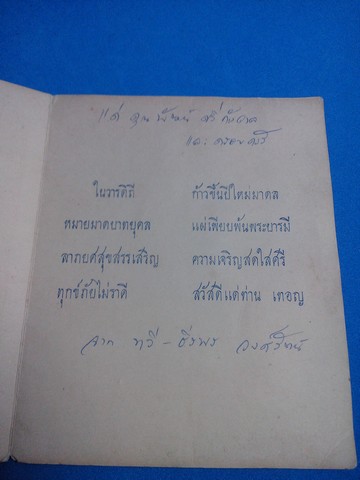 แด่ คุณ
และครอบครัว
ในวารดิถี ก้าวขึ้นปีใหม่มาดล
หมายมาดบาทยุคล แผ่เพียบพ้นพระบารมี
ลาภยศสุขสรรเสริญ ความเจริญสดใสศรี
ทุกข์ภัยไม่ราวี สวัสดีแด่ท่าน เทอญ
จาก ทวี - ธีรพร